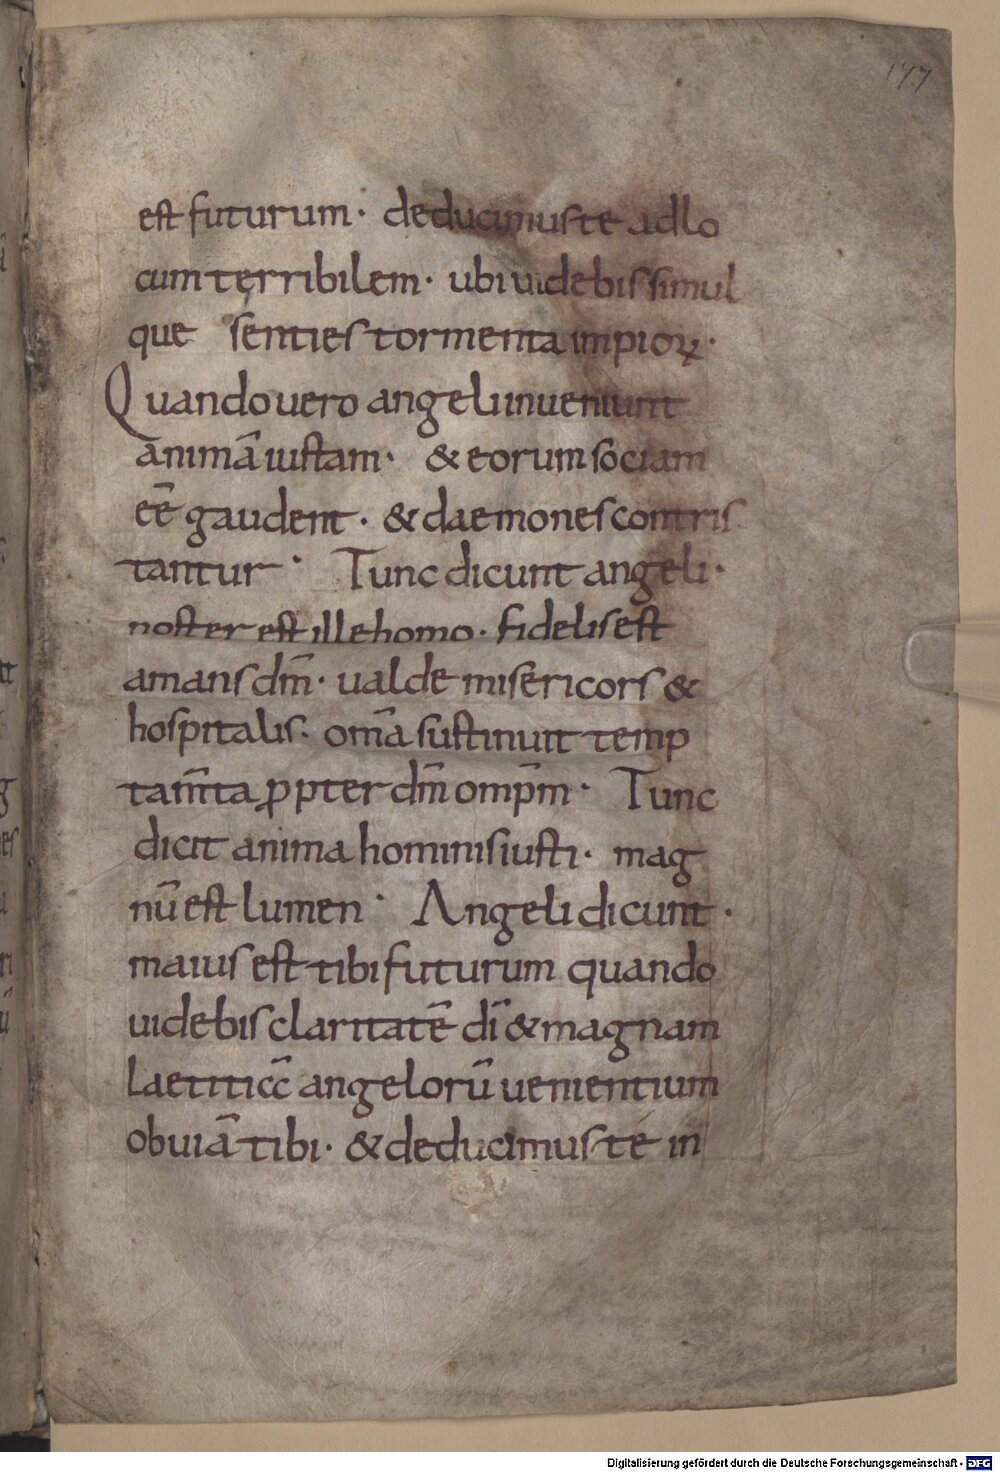 177
est futurum · deducimus te ad lo
cum terribilem · ubi uidebis simul
que senties tormenta impioꝝ ·
Quando uero angeli inueniunt
animā iustam · & eorum sociam
eē gaudent · & daemones contris
tantur · Tunc dicunt angeli ·
noster est ille homo · fidelis est
amans dm̄ · ualde misericors &
hospitalis · om̄a sustinuit temp
tam̄ta propter dm̄ omp̄m · Tunc
dicit anima hominis iusti · mag
nū est lumen · Angeli dicunt ·
maius est tibi futurum quando
uidebis claritatē dī & magnam
laetitiā angelorū uenientium
obuiā tibi · & deducimus te in
Digitalisierung gefördert durch die Deutsche Forschungsgemeinschaft - DFG